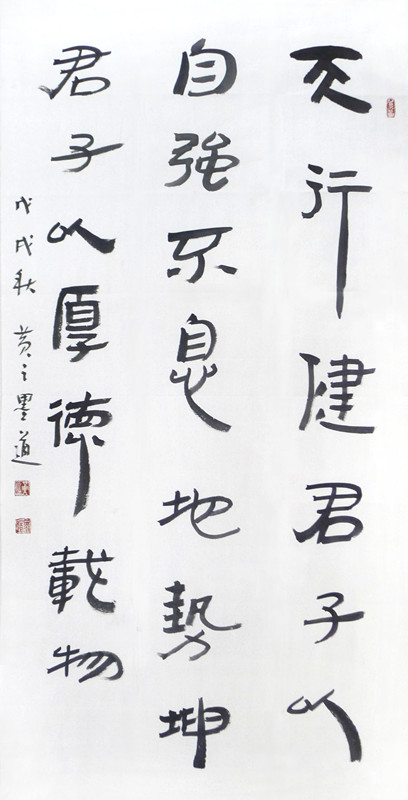 天行健君子以
自強不息地勢坤
君子以厚德載物
戊戌秋 黄之墨道